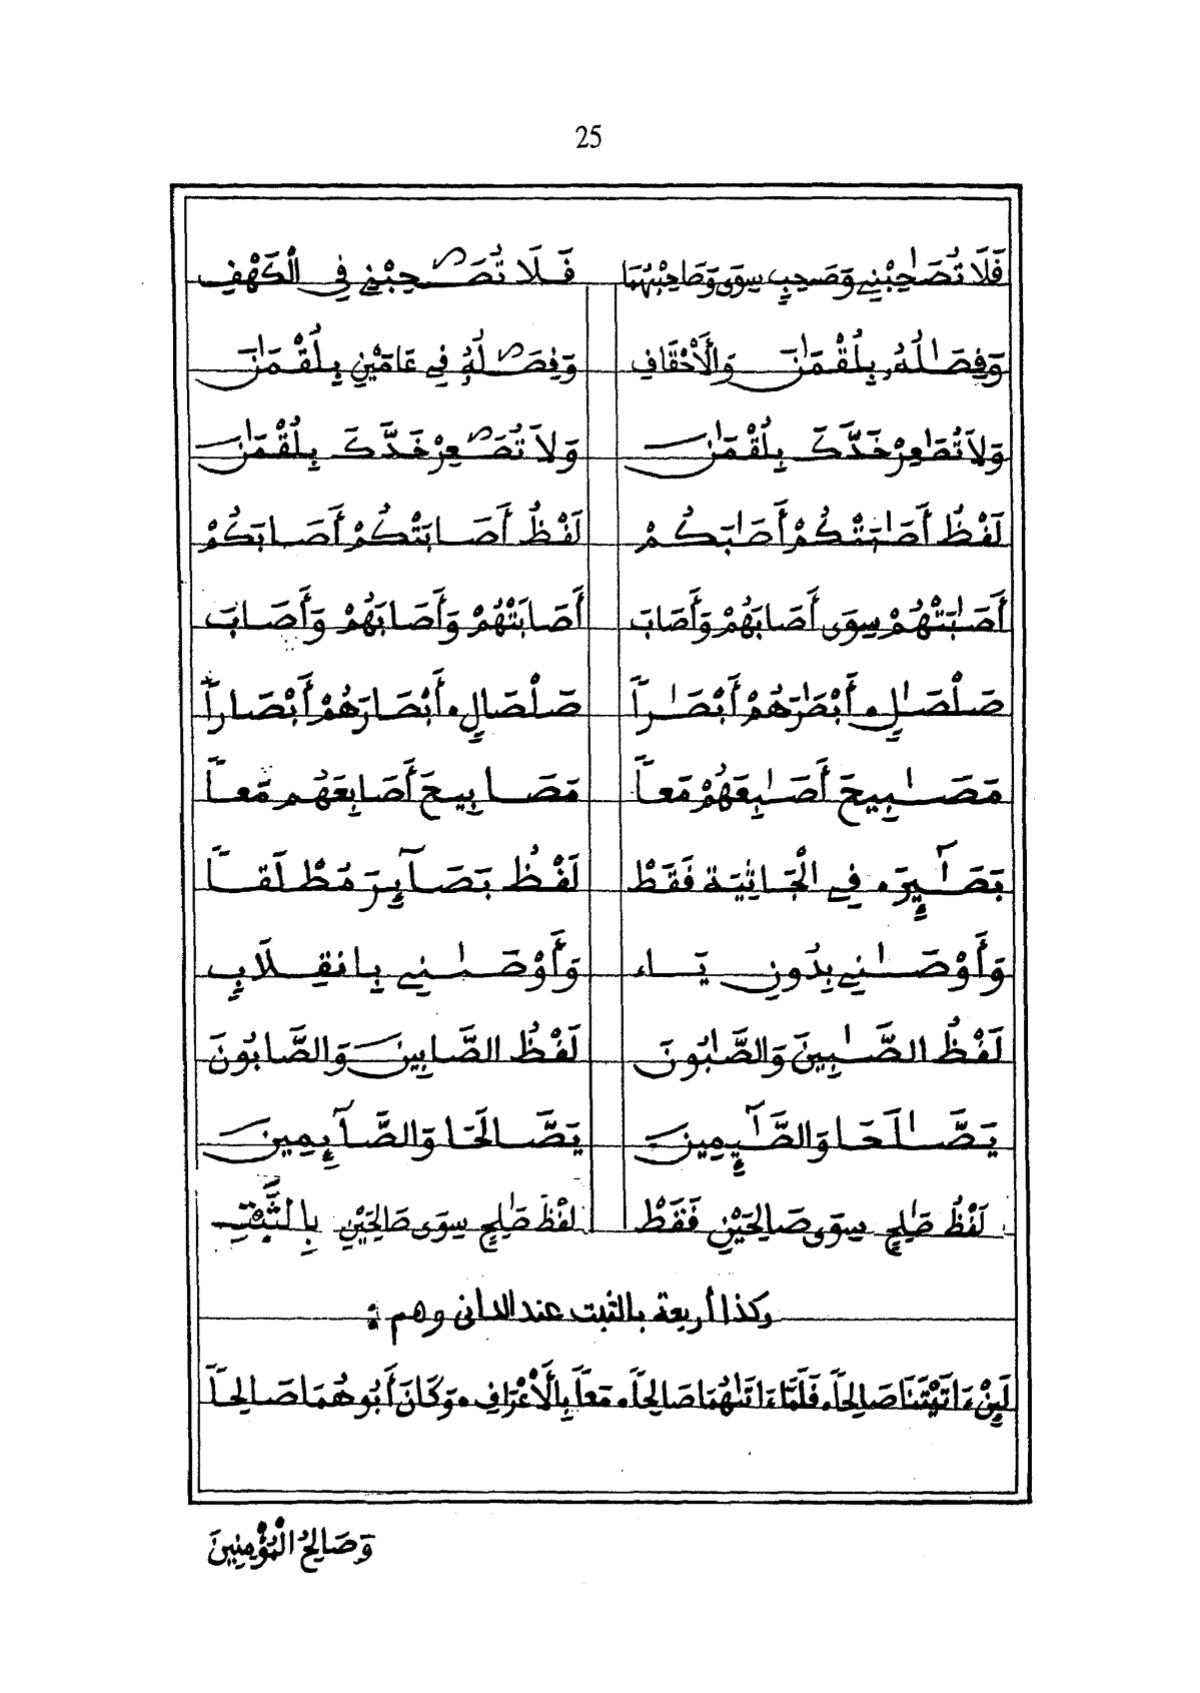 25
فَلَا تُصَٰحِبْنِي وَصَٰحِبِ سِوَى وَصَاحِبْهُمَا فَلَا تُصَٰحِبْنِي فِي الْكَهْفِ
وَفِصَٰلُهُ بِلُقْمَٰنَ وَالْأَحْقَافِ وَفِصَٰلُهُ فِي عَامَيْنِ بِلُقْمَٰنَ
وَلَا تُصَٰعِرْ خَدَّكَ بِلُقْمَٰنَ وَلَا تُصَٰعِرْ خَدَّكَ بِلُقْمَٰنَ
لَفْظُ أَصَٰبَتْكُمْ أَصَٰبَكُمْ لَفْظُ أَصَابَتْكُمْ أَصَابَكُمْ
أَصَٰبَتْهُمْ سِوَى أَصَابَهُمْ وَأَصَابَ أَصَابَتْهُمْ وَأَصَابَهُمْ وَأَصَابَ
صَلْصَٰلٍ، أَبْصَٰرَهُمْ أَبْصَٰراً صَلْصَالٍ، أَبْصَارَهُمْ أَبْصَاراً
مَصَٰبِيحَ أَصَٰبِعَهُمْ مَعاً مَصَابِيحَ أَصَابِعَهُمْ مَعاً
بَصَٰٓئِرَ، فِي الْجَاثِيَةِ فَقَطْ لَفْظُ بَصَآئِرَ مُطْلَقاً
وَأَوْصَٰنِي بِدُونِ يَاءٍ وَأَوْصَٰنِي بِانقِلَابٍ
لَفْظُ الصَّٰبِينَ وَالصَّٰبُونَ لَفْظُ الصَّابِينَ وَالصَّابُونَ
يَصَّٰلَحَا وَالصَّٰٓئِمِينَ يَصَّالَحَا وَالصَّآئِمِينَ
لَفْظُ صَٰلِحٍ سِوَى صَالِحَيْنِ فَقَطْ لَفْظُ صَٰلِحٍ سِوَى صَالِحَيْنِ بِالثَّبْتِ
وكذا أربعة بالثبت عند الدانى وهم :
لَئِنْ ءَاتَيْتَنَا صَالِحاً، فَلَمَّا ءَاتَىٰهُمَا صَالِحاً، مَعاً بِالْأَعْرَافِ، وَكَانَ أَبُوهُمَا صَالِحاً
وَصَالِحُ الْمُؤْمِنِينَ